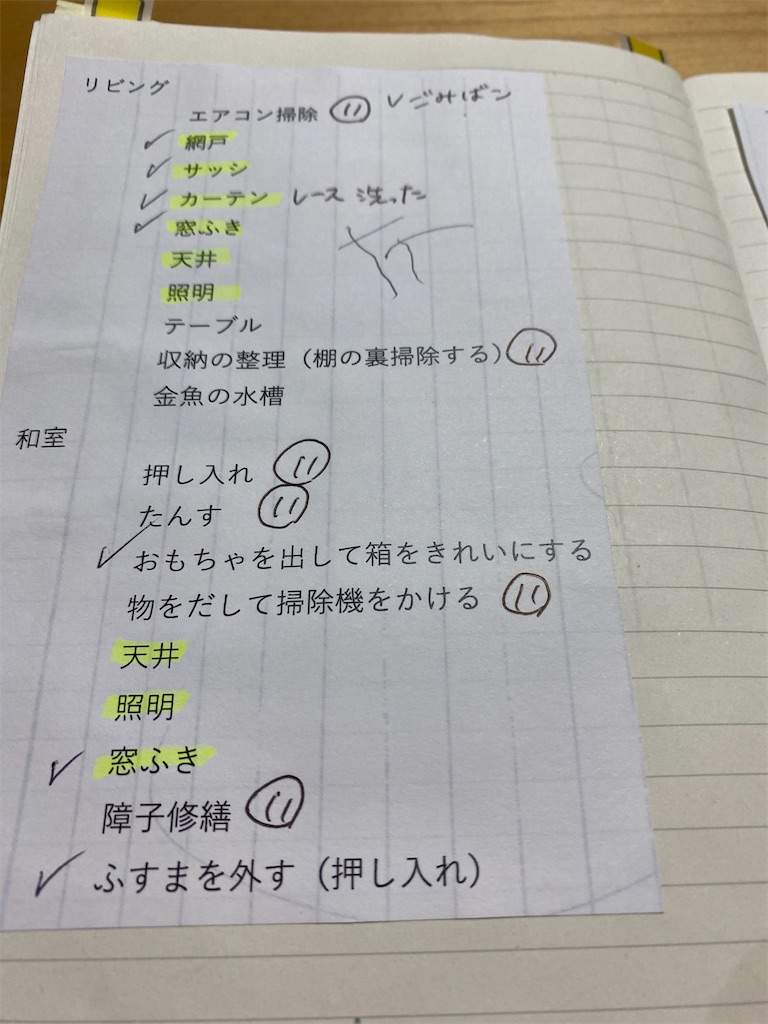 リビング
エアコン掃除 ⑪ ✓ごみばこ
✓ 網戸
✓ サッシ
✓ カーテン レース 洗った
✓ 窓ふき
天井
照明
テーブル
収納の整理（棚の裏掃除する）⑪
金魚の水槽
和室
押し入れ ⑪
たんす ⑪
✓ おもちゃを出して箱をきれいにする
物をだして掃除機をかける ⑪
天井
照明
✓ 窓ふき
障子修繕 ⑪
✓ ふすまを外す（押し入れ）